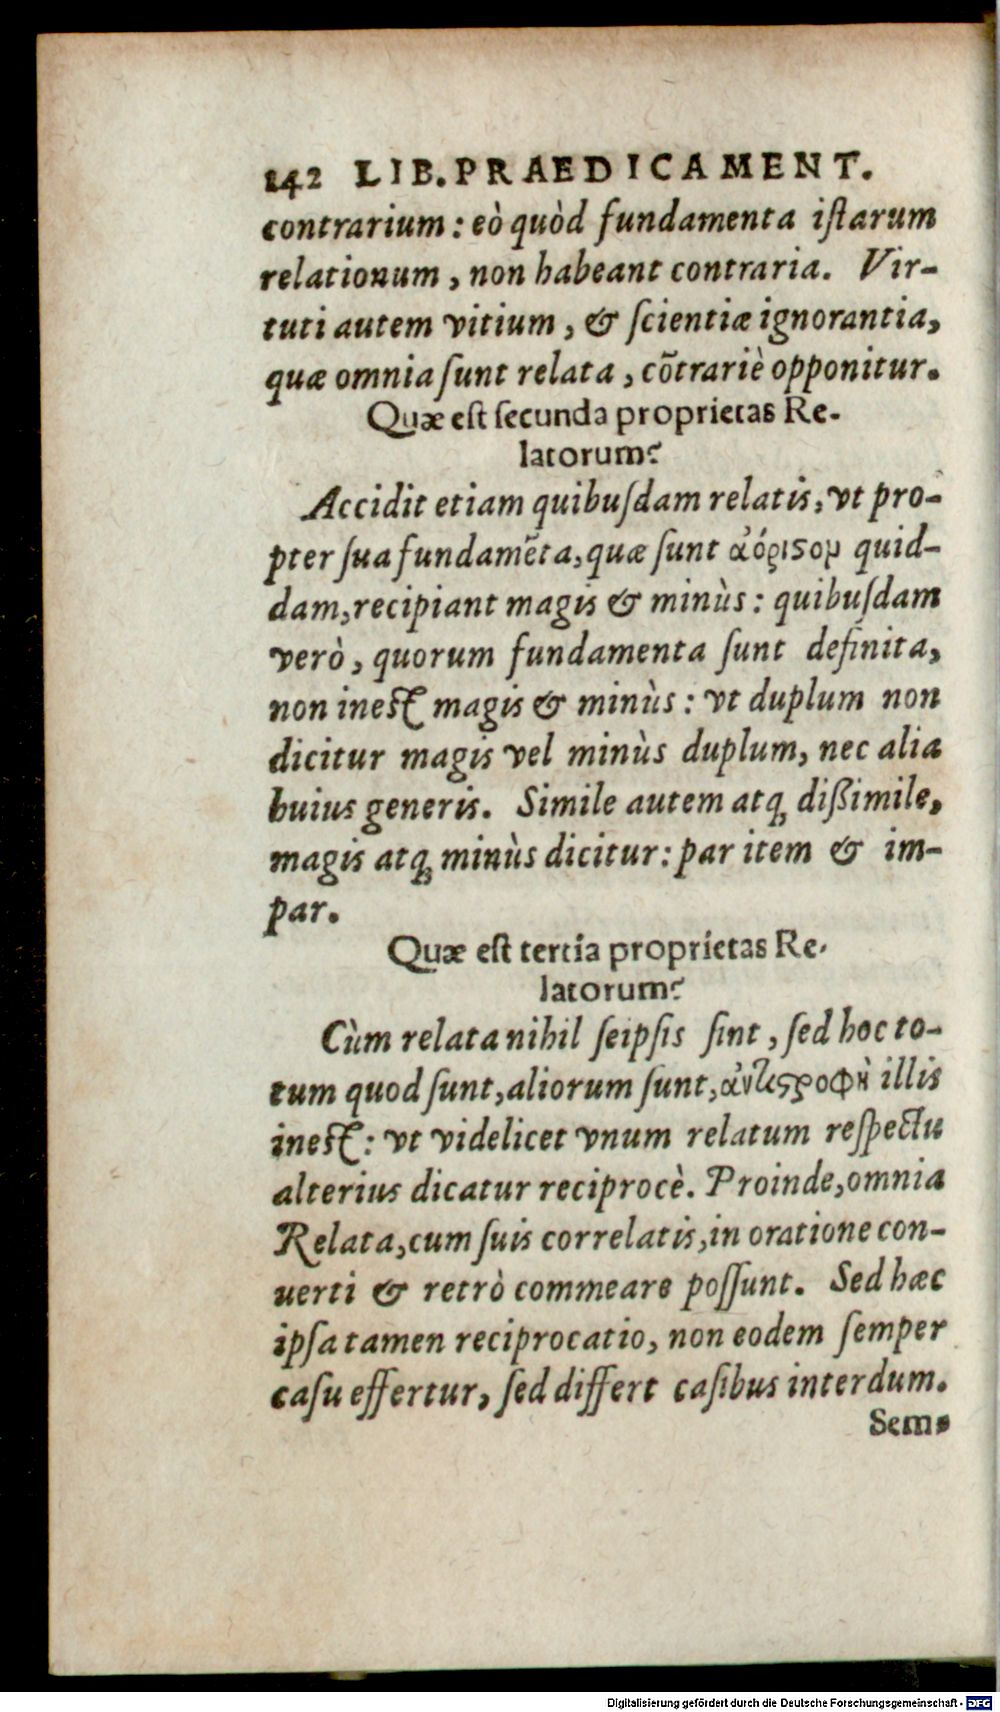 142 LIB. PRAEDICAMENT.
contrarium: eò quòd fundamenta iſtarum
relationum, non habeant contraria. Vir-
tuti autem vitium, & ſcientiæ ignorantia,
quæ omnia ſunt relata, cõtrariè opponitur.
Quæ eſt ſecunda proprietas Re-
latorum?
Accidit etiam quibuſdam relatis, vt pro-
pter ſua fundamẽta, quæ ſunt ἀόριϛομ quid-
dam, recipiant magis & minùs: quibuſdam
verò, quorum fundamenta ſunt definita,
non ineſt magis & minùs: vt duplum non
dicitur magis vel minùs duplum, nec alia
huius generis. Simile autem atq; dißimile,
magis atq; minùs dicitur: par item & im-
par.
Quæ eſt tertia proprietas Re-
latorum?
Cùm relata nihil ſeipſis ſint, ſed hoc to-
tum quod ſunt, aliorum ſunt, ἀντιϛροφὴ illis
ineſt: vt videlicet vnum relatum reſpectu
alterius dicatur reciprocè. Proinde, omnia
Relata, cum ſuis correlatis, in oratione con-
uerti & retrò commeare poſſunt. Sed hæc
ipſa tamen reciprocatio, non eodem ſemper
caſu effertur, ſed differt caſibus interdum.
Sem-
Digitalisierung gefördert durch die Deutsche Forschungsgemeinschaft - DFG